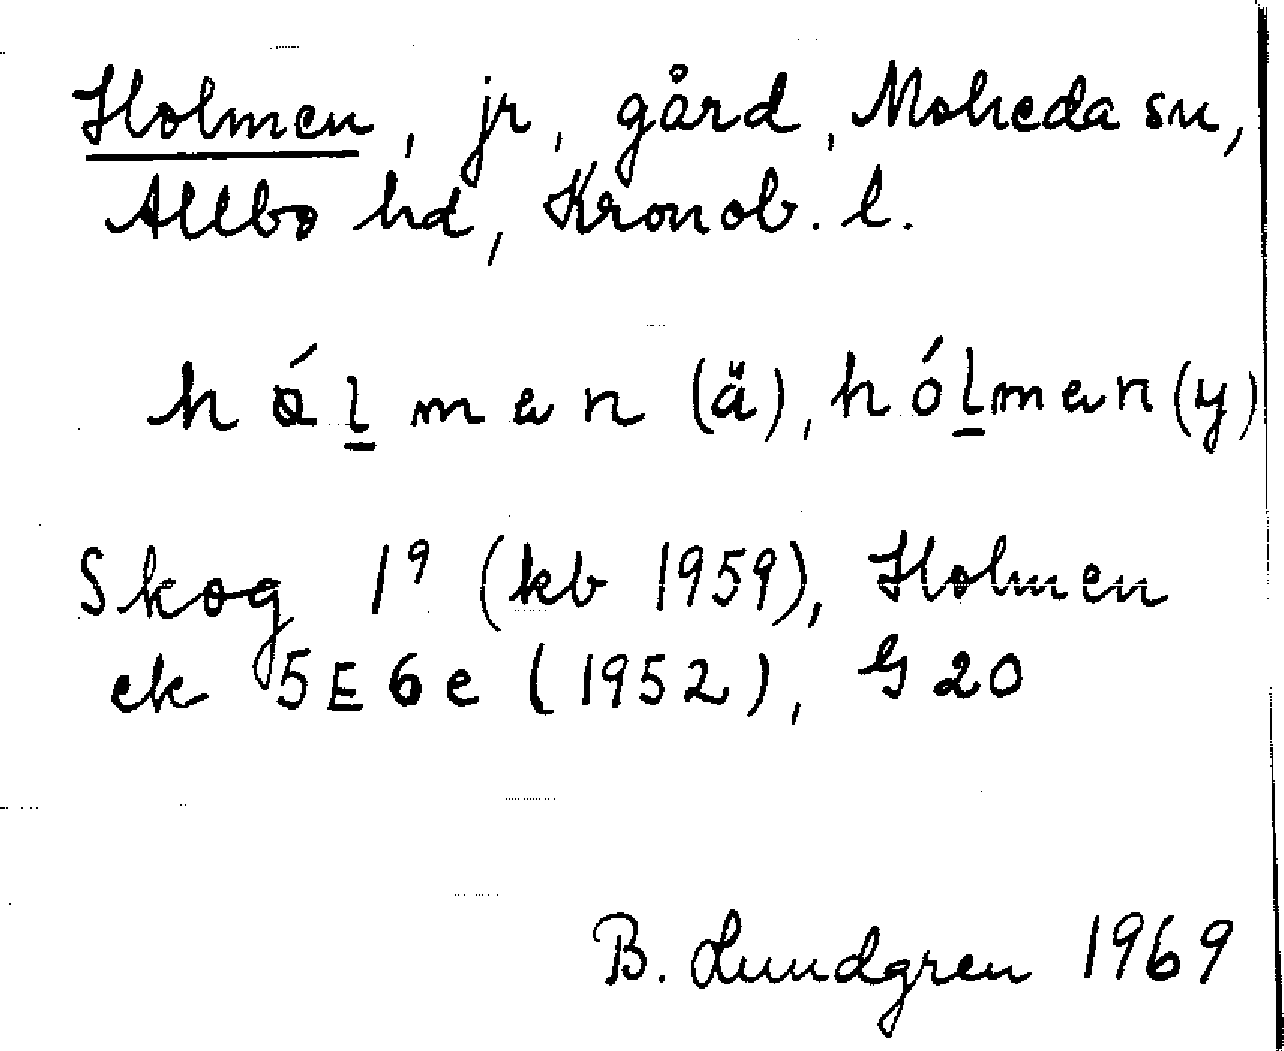 Holmen, jr, gård, Moheda sn,
Allbo hd, Kronob. l.
hǻl̲man (ä), hól̲man (y)
Skog 1⁹ (kb 1959), Holmen
ek 5E6e (1952), G 20
B. Lundgren 1969